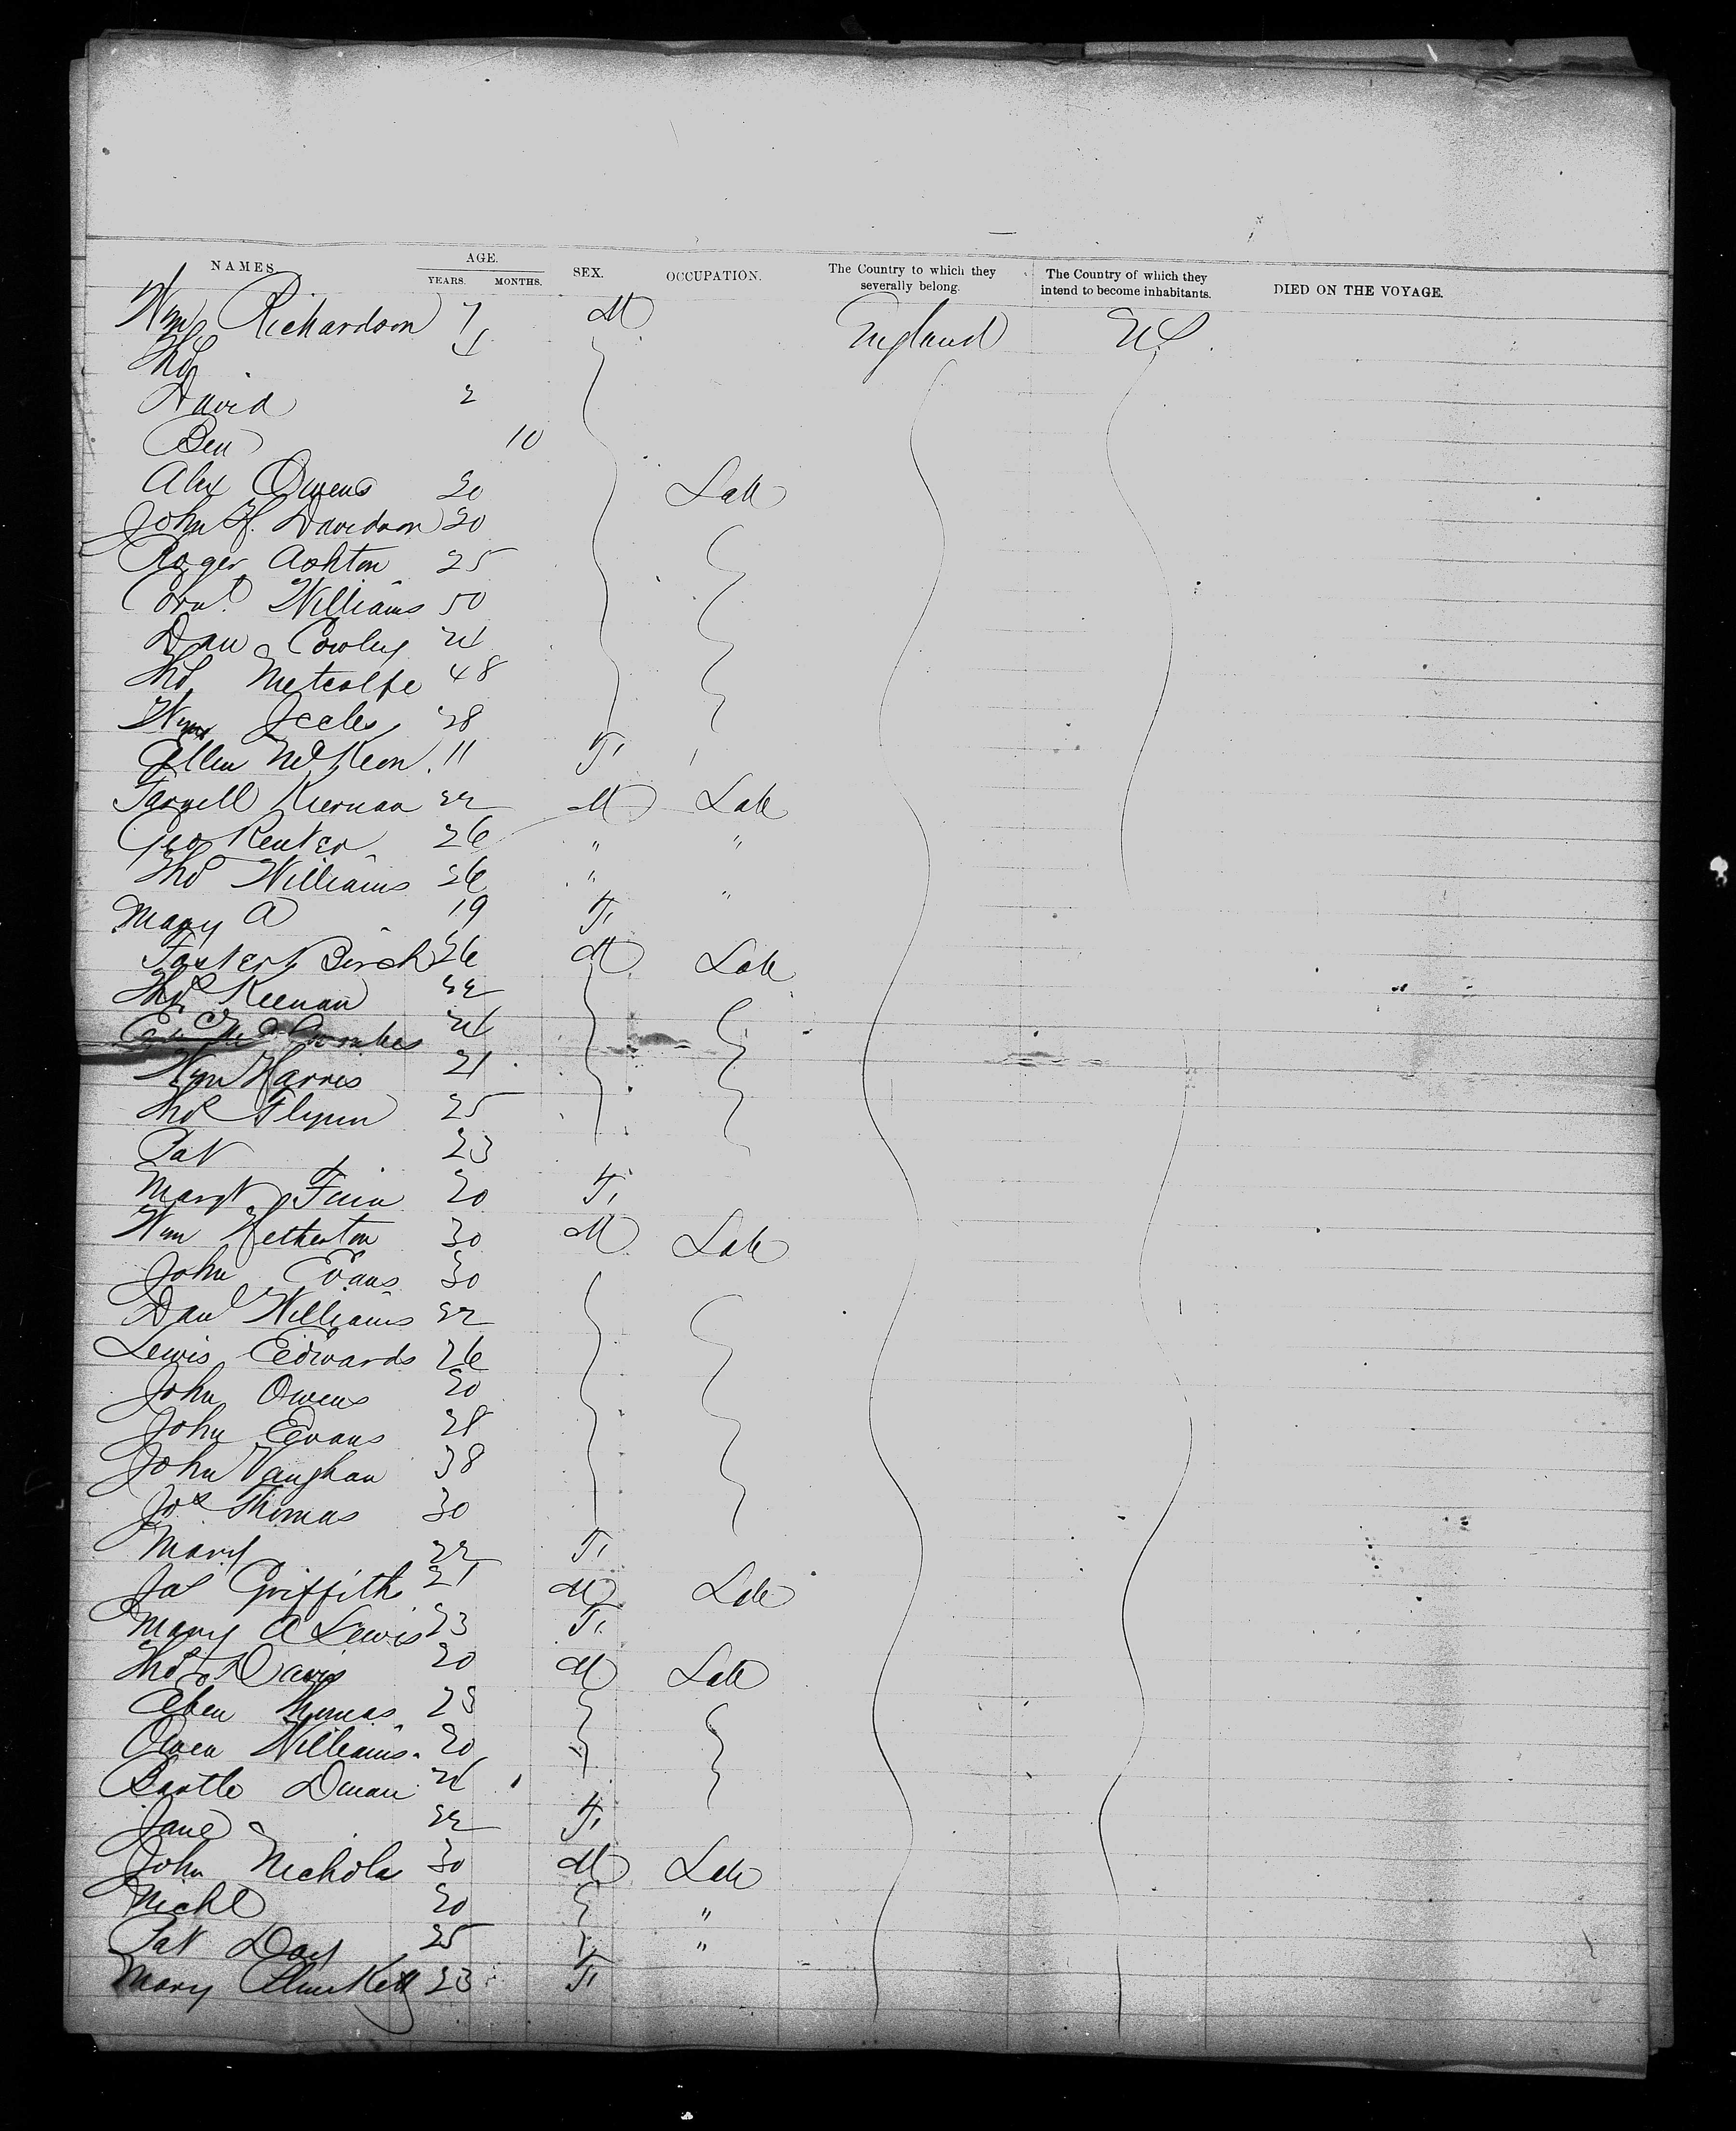 NAMES. AGE. SEX. OCCUPATION. The Country to which they severally belong. The Country of which they intend to become inhabitants. DIED ON THE VOYAGE.
YEARS. MONTHS.
Wm Richardson 7 M England US
Thos 4
David 2
Ben 10
Alex Owens 20 Lab
John H. Davidson 20
Roger Ashton 25
Williams 50
Dan Cowley 24
Thos Metcalfe 48
Wm 28
Ellen McKeon 11 F
Farrell Kiernan 22 M Lab
Geo 26 " "
Thos Williams 26 " "
Mary A 19 F
Birch 26 M Lab
Thos Keenan 22
24
Wm Harris 21
Thos Flynn 25
Pat 23
Margt 20 F
Wm Hetherton 30 M Lab
John Evans 30
Danl Williams 22
Lewis Edwards 26
John Owens 20
John Evans 28
John Vaughan 38
Jos Thomas 30
Mary 22 F
Jas Griffith 21 M Lab
Mary A Lewis 23 F
Thos Davis 20 M Lab
Eben Thomas 23
Owen Williams 20
Bartle 24
Jane 22 F
John Nichols 30 M Lab
Michl 20 "
Pat Day 25 "
Mary Plunkett 23 F